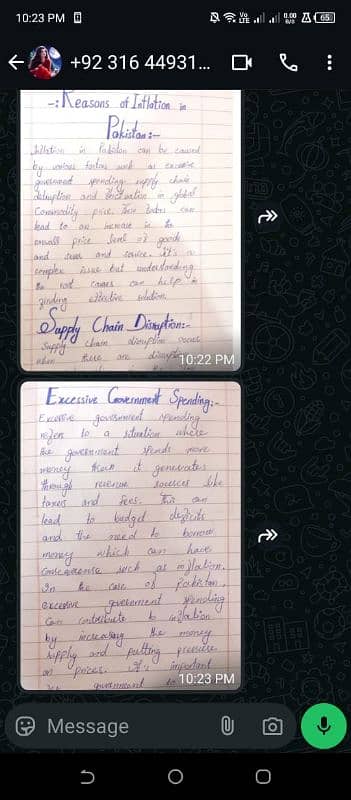 10:23 PM
Vo LTE 0.00 B/S 65
+92 316 44931...
-: Reasons of Inflation in
Pakistan:-
Inflation in Pakistan can be caused
by various factors such as excessive
government spending, supply chain
disruption and fluctuation in global
Commodity price. These factors can
lead to an increase in the
overall price level of goods
and and service. It's a
complex issue but understanding
the root causes can help in
finding effective solution.
Supply Chain Disruption:-
Supply chain disruption occurs
when there are disruption
10:22 PM
Excessive Government Spending:-
Excessive government spending
refers to a situation where
the government spends more
money than it generates
through revenue sources like
taxes and fees. This can
lead to budget deficits
and the need to borrow
money which can have
such as inflation.
In the case of Pakistan,
excessive government spending
can contribute to inflation
by increasing the money
supply and putting pressure
on prices. It's important
government to
10:23 PM
Message